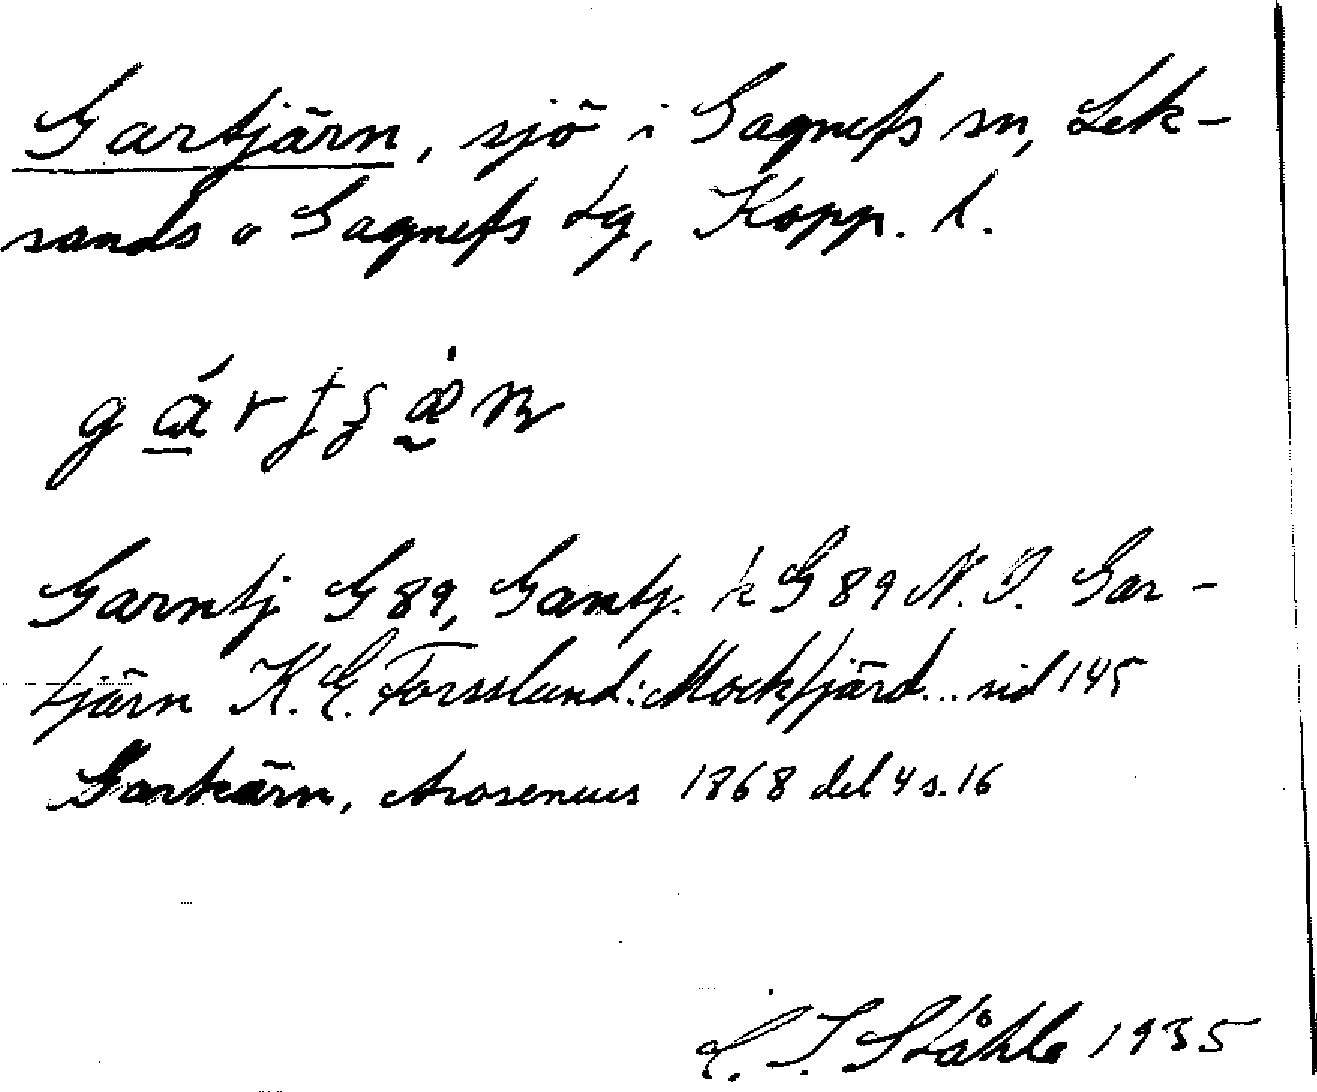 Gartjärn, sjö i Gagnefs sn, Lek-
sands o Gagnefs tg, Kopp. l.
Garntj G 89, Gamtj. k G 89 N. O. Gar-
tjärn K. E. Forsslund: Mockfjärd... sid 145
Gartkärn, Arosenius 1868 del 4 s. 16
C. I. Ståhle 1935